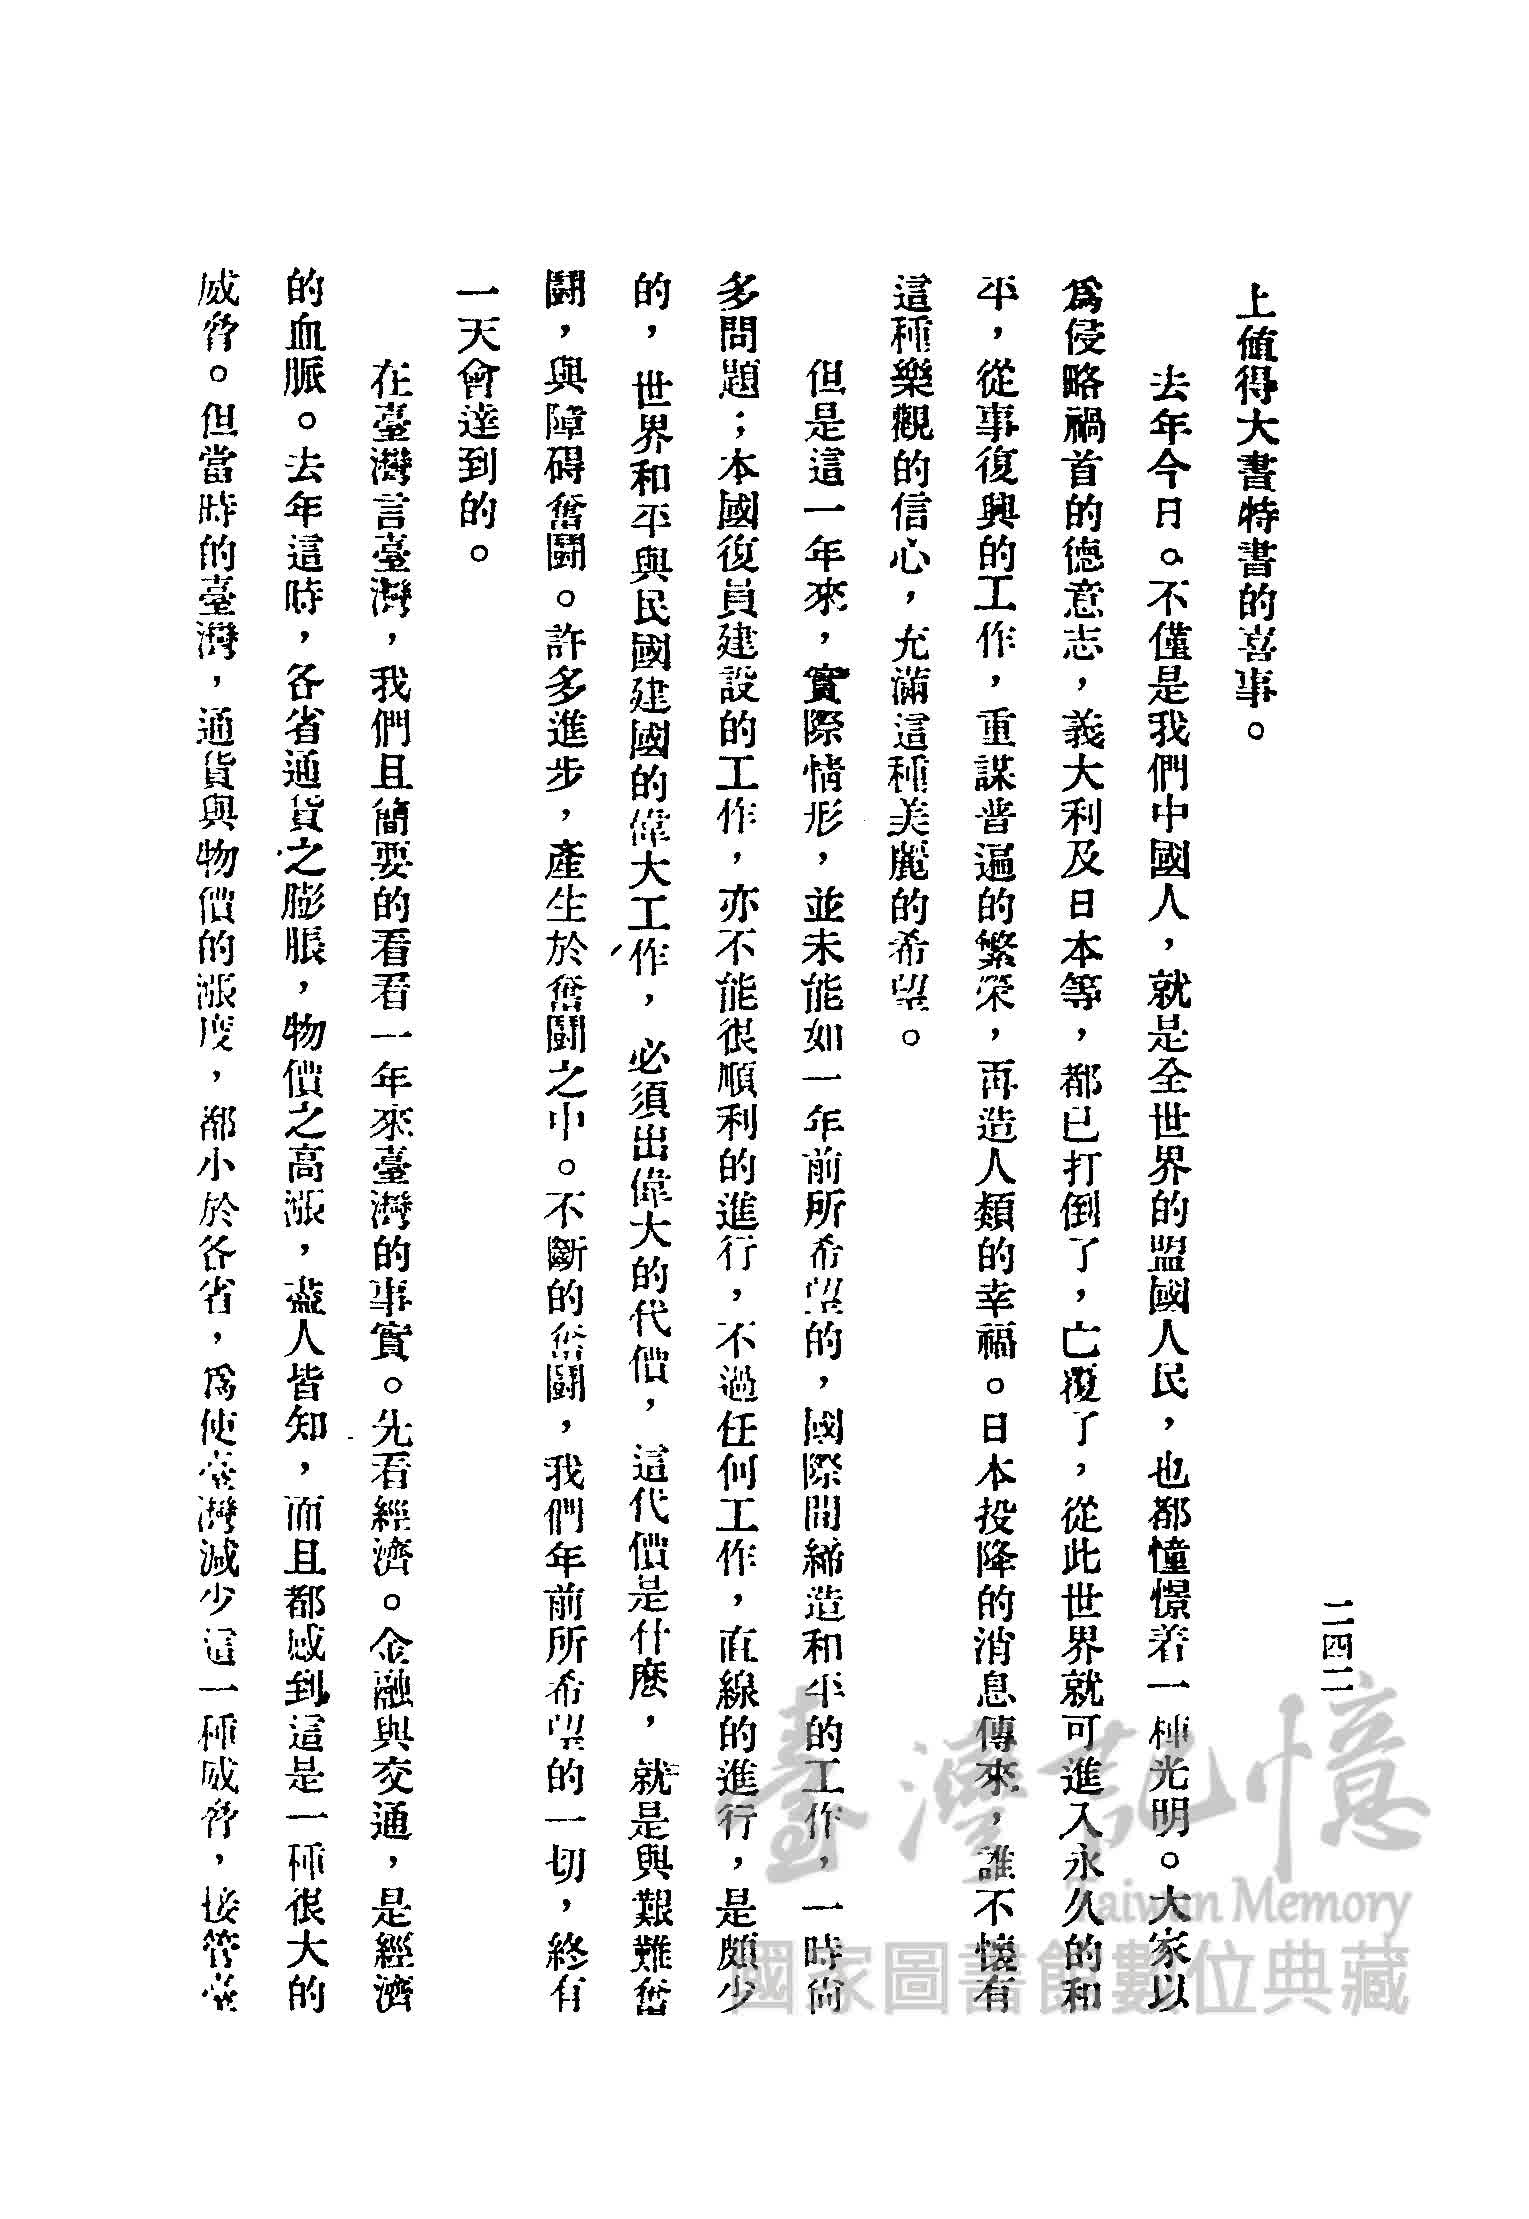 二四二
上値得大書特書的喜事。
去年今日。不僅是我們中國人，就是全世界的盟國人民，也都憧憬着一種光明。大家以
爲侵略禍首的德意志，義大利及日本等，都已打倒了，亡覆了，從此世界就可進入永久的和
平，從事復興的工作，重謀普遍的繁榮，再造人類的幸福。日本投降的消息傳來，誰不懷有
這種樂觀的信心，充滿這種美麗的希望。
但是這一年來，實際情形，並未能如一年前所希望的，國際間締造和平的工作，一時尙
多問題；本國復員建設的工作，亦不能很順利的進行，不過任何工作，直線的進行，是頗少
的，世界和平與民國建國的偉大工作，必須出偉大的代價，這代價是什麽，就是與艱難奮
鬪，與障碍奮鬪。許多進步，產生於奮鬪之中。不斷的奮鬪，我們年前所希望的一切，終有
一天會達到的。
在臺灣言臺灣，我們且簡要的看看一年來臺灣的事實。先看經濟。金融與交通，是經濟
的血脈。去年這時，各省通貨之膨脹，物價之高漲，盡人皆知，而且都感到這是一種很大的
威脅。但當時的臺灣，通貨與物價的漲度，都小於各省，爲使臺灣減少這一種威脅，接管臺
臺灣記憶
Taiwan Memory
國家圖書館數位典藏